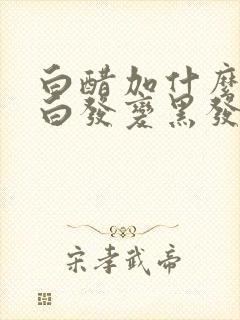 白醋加什麼
白發變黑發
宋孝武帝